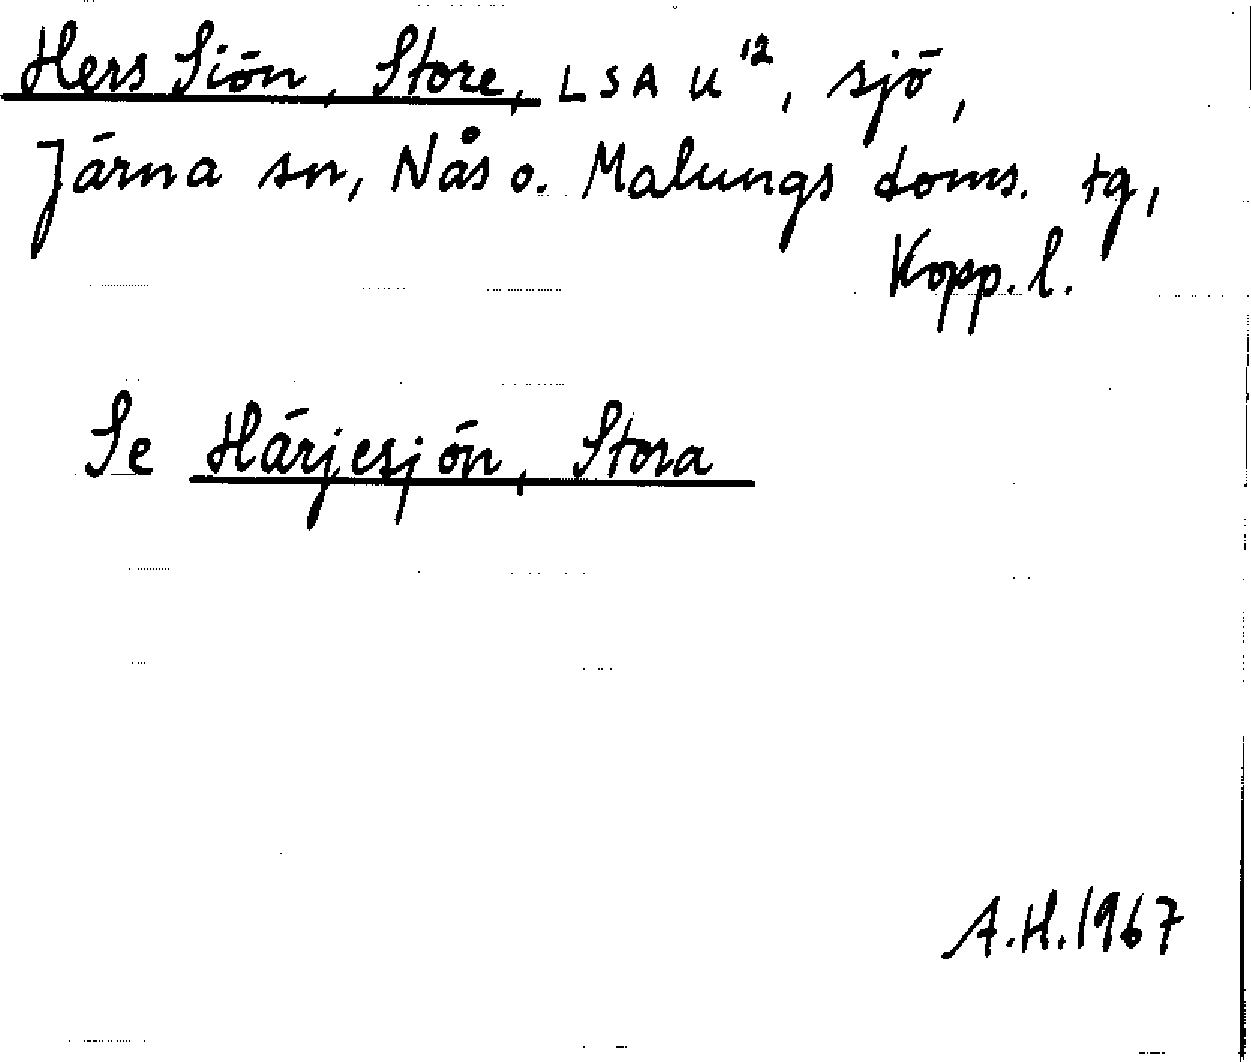 Hers Siön, Store, LSA U¹², sjö,
Järna sn, Nås o. Malungs doms. tg,
Kopp. l.
Se Härjesjön, Stora
A.H. 1967